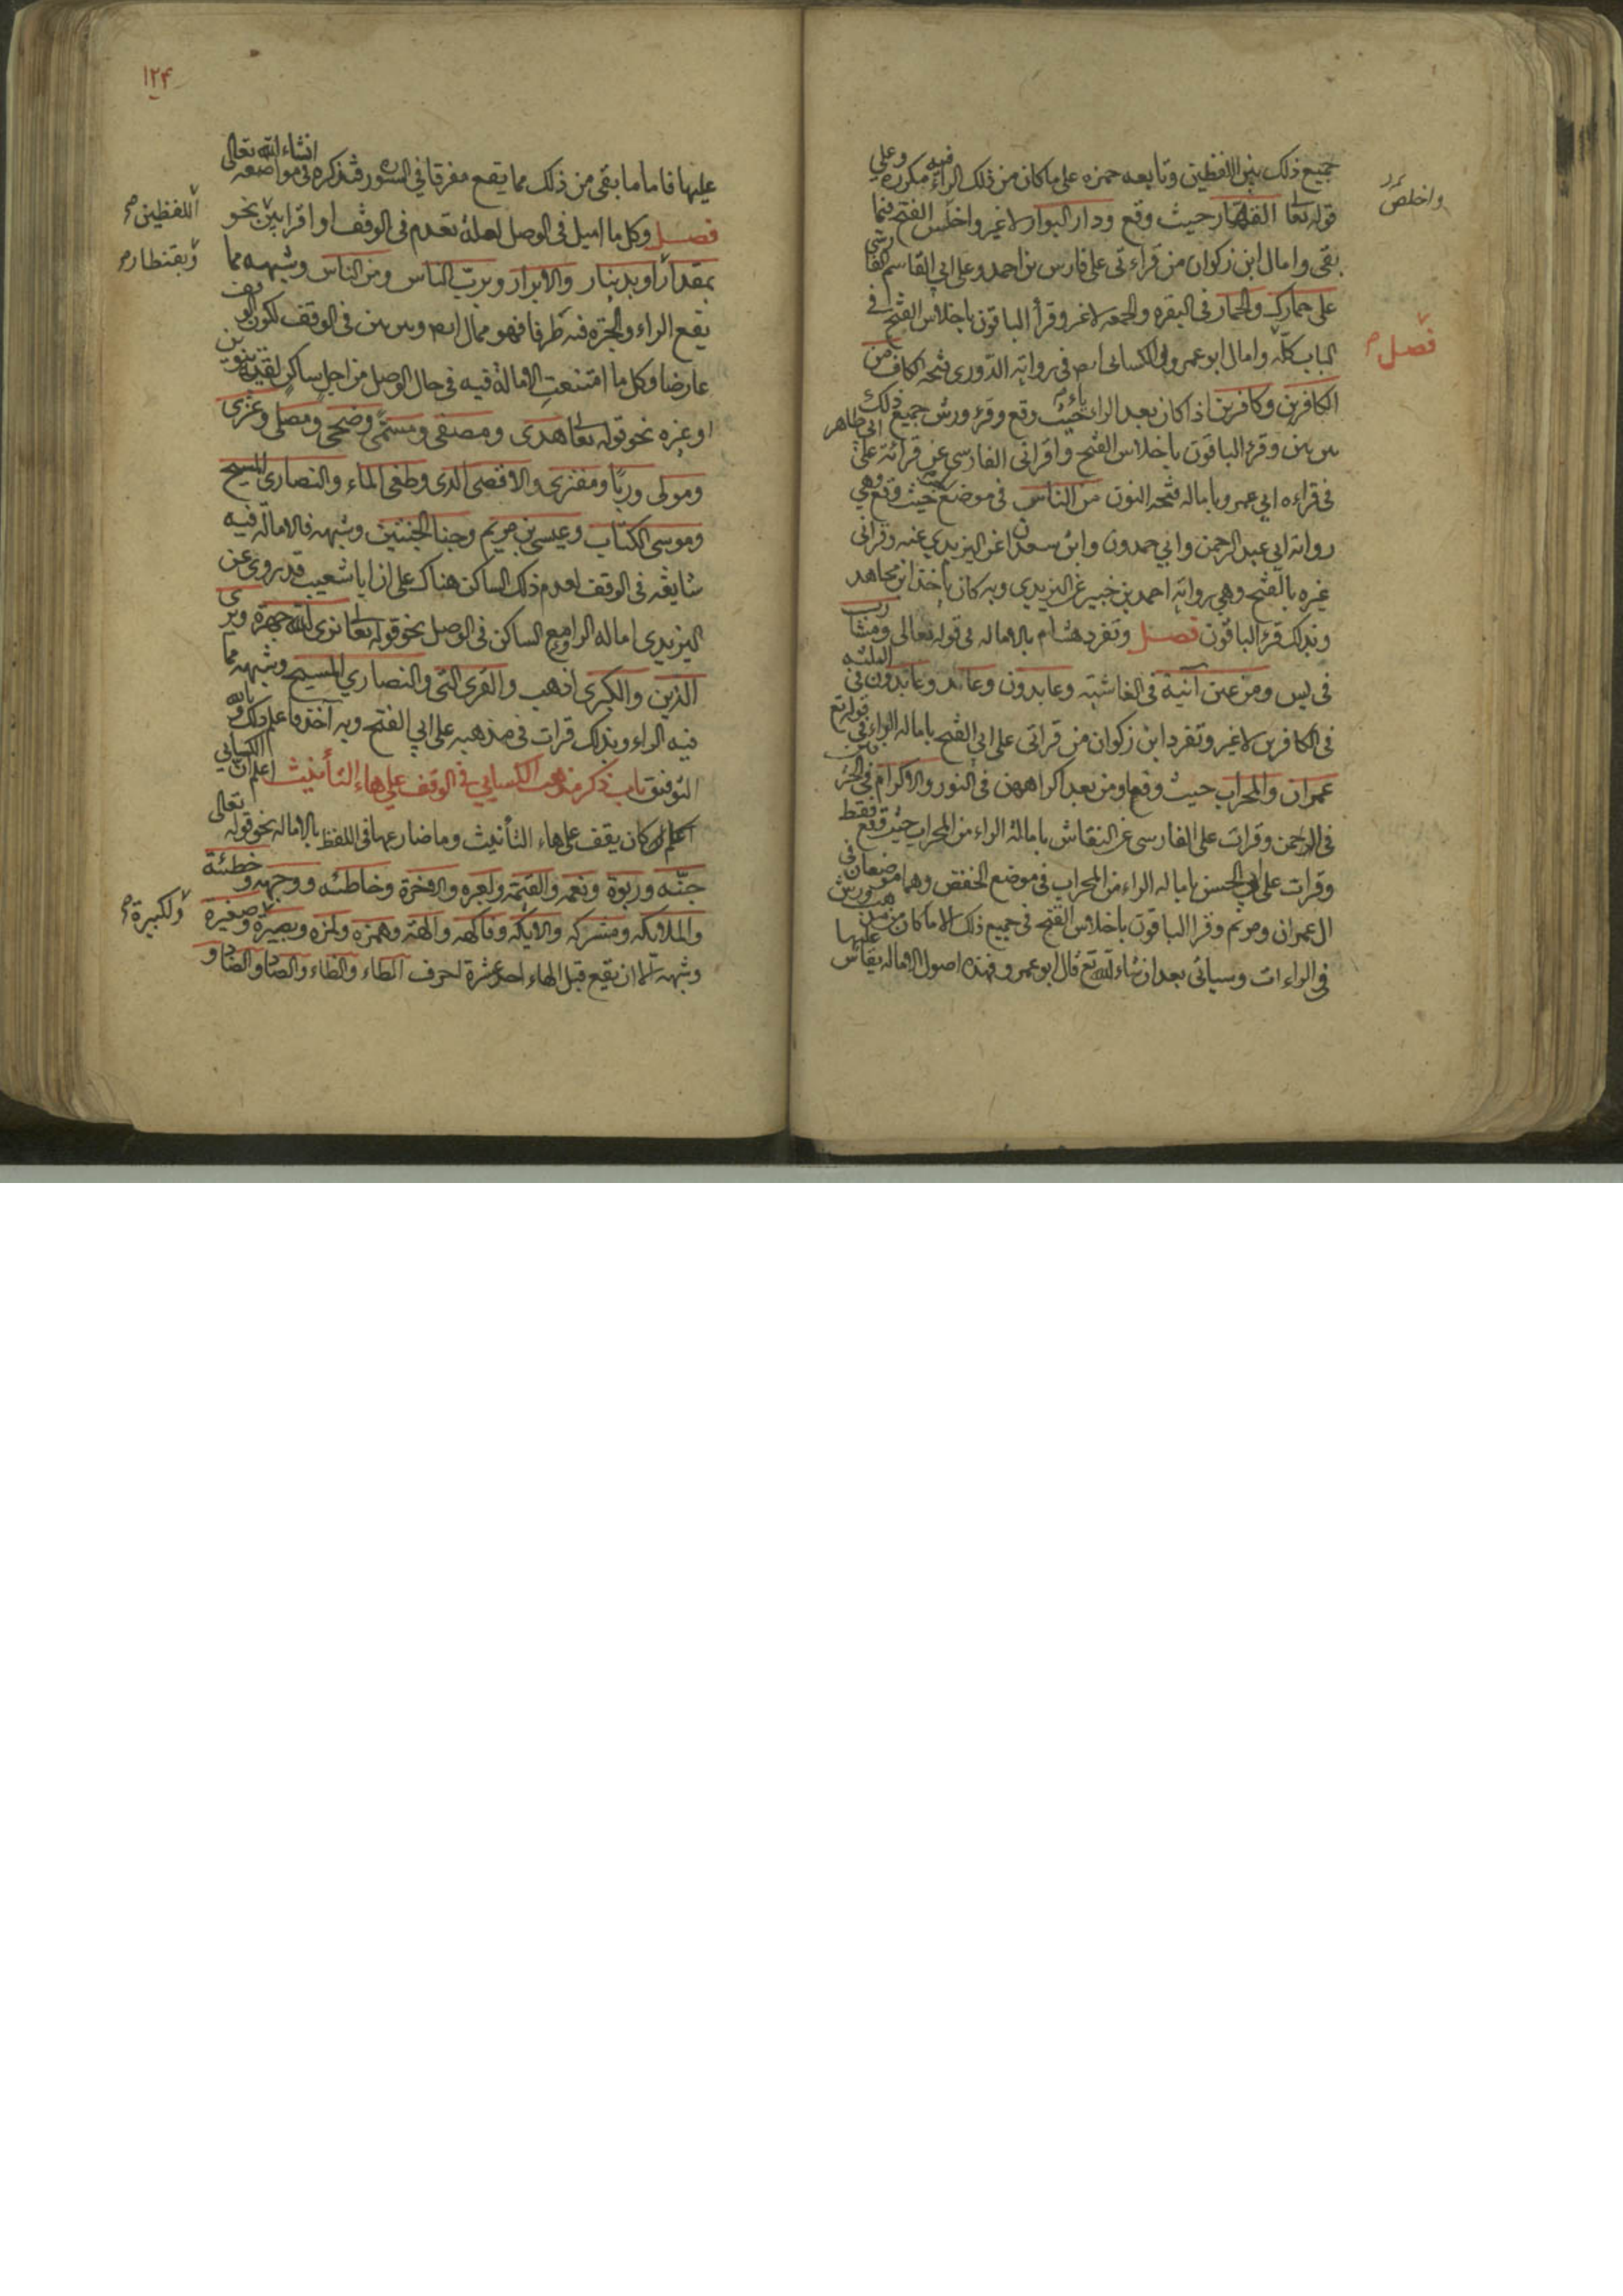 جميع ذلك بين اللفظين وتابعه حمزه على ما كان من ذلك الراء فيه مكرره وعلي
قوله تعا القهار حيث وقع ودار البوار لا غير واخلص الفتح فيما
بقى وامال ابن ذكوان من قراءتى على فارس بن احمد وعلى ابي القاسم الفا رسى
على حمارك والحمار فى البقره والجمعه لا غير وقرأ الباقون باخلاص الفتح فى
الباب كله وامال ابو عمرو والكسائى ايض فى رواية الدورى فتحه الكاف من
الكافرين وكافرين اذا كان بعد الراء ياء حيث وقع وقرء ورش جميع ذلك
بين بين وقرء الباقون باخلاص الفتح واقرانى الفارسى عن قرائة على ابى طاهر
فى قراءه ابي عمرو باماله فتحه النون من الناس فى موضع حيث وقع وهي
رواية ابي عبد الرحمن وابي حمدون وابن سعدان عن اليزيدي عنه وقرانى
غيره بالفتح وهي رواية احمد بن جبير عن اليزيدي وبه كان ياخذ ابن مجاهد
وبذلك قرء الباقون فصل وتفرد هشام بالاماله فى قوله تعالى ومشارب
فى يس ومن عين آنية فى الغاشيه وعابدون وعابد وعابدون فى الثلثه
فى الكافرين لا غير وتفرد ابن ذكوان من قراتى على ابى الفتح باماله الراء فى قوله تع
عمران والمحراب حيث وقعا ومن بعد اكراههن فى النور والاكرام فى الحر
فى الرحمن وقرات على الفارسى عن النقاش بامالة الراء من المحراب حيث وقع فقط
وقرات على ابي الحسن باماله الراء من المحراب فى موضع الخفض وهما موضعان فى
ال عمران ومريم وقرا الباقون باخلاص الفتح فى جميع ذلك الا ما كان من مذهب ورش
فى الراءات وسياتى بعد ان شاء الله تع قال ابو عمرو فهذه اصول الاماله يقاس عليها
واخلص
فصل
١٢۴
عليها فاما ما بقى من ذلك مما يقع مفرقا في السور فنذكره فى مواضعه انشاء الله تعالى
فصل وكل ما اميل فى الوصل لعلة تعدم فى الوقف او اقرا بين نحو
بمقدار او بدينار والابرار وبرب الناس ومن الناس وشبهه مما
يقع الراء والجرة فيه طرفا فهو ممال ايض وبين بين فى الوقف لكون الوقف
عارضا وكل ما امتنعت الامالة فيه فى حال الوصل من اجل ساكن لقيه تنوين
او غيره نحو قوله تعا هدى ومصفى ومسمى وضحى ومصلى وغزى
ومولى وربا ومفترى والاقصى الذى وطغى الماء والنصارى المسيح
وموسى الكتاب وعيسى بن مريم وجنا الجنتين وشبهه فالامالة فيه
شايعه فى الوقف لعدم ذلك الساكن هناك على ان ابا شعيب قد روى عن
اليزيدى اماله الراء مع الساكن فى الوصل نحو قوله تعا نرى الله جهرة ويرى
الذين والكبرى اذهب والقرى التى والنصاري المسيح وشبهه مما
فيه الراء وبذلك قرات فى مذهبه على ابي الفتح وبه آخذ فاعلم ذلك وبالله
التوفيق باب ذكر مذهب الكسايي فى الوقف على هاء التأنيث اعلم ان الكسايي
كان يقف على هاء التأنيث وما ضارعها فى اللفظ بالاماله نحو قوله تعالى
جنه وربوة ونعمه والقيمه ولعبره والاخرة وخاطئه ووجهه وخطئة
والملايكه ومشركه والايكه وفاكهه والهة وهمزه ولمزه وبصيرة وصغيره
وشبهه الا ان يقع قبل الهاء احد عشرة احرف الطاء والظاء والصاد والضاد و
اللفظين
وبقنطار
ولكبيرة